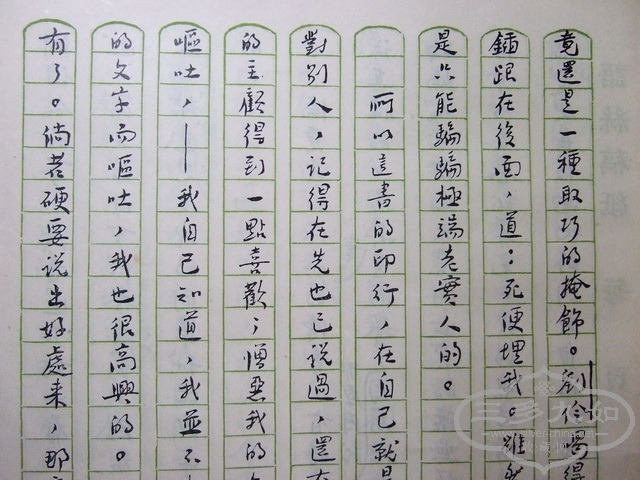 竟還是一種取巧的掩飾。劉伶喝得
鍤跟在後面,道:死便埋我。雖
是只能騙騙極端老實人的。
所以這書的印行,在自己就是
對別人,記得在先也已說過,還有
的主顧得到一點喜歡;憎惡我的
嘔吐,——我自己知道,我並不
的文字而嘔吐,我也很高興的。
有了。倘若硬要說出好處來,那
三多九如